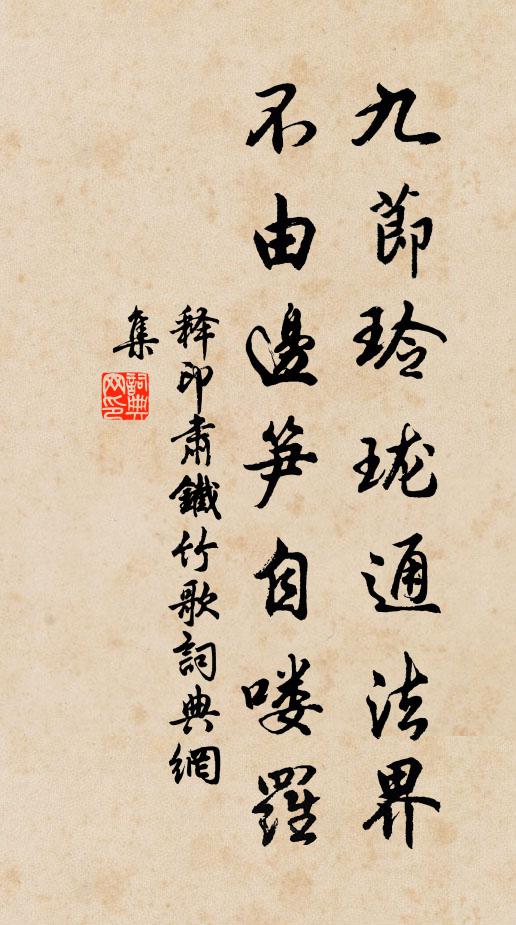 九節玲瓏通法界
不由邊笋自喽羅
释印肅鐵竹歌詞典網
集
詞典網印